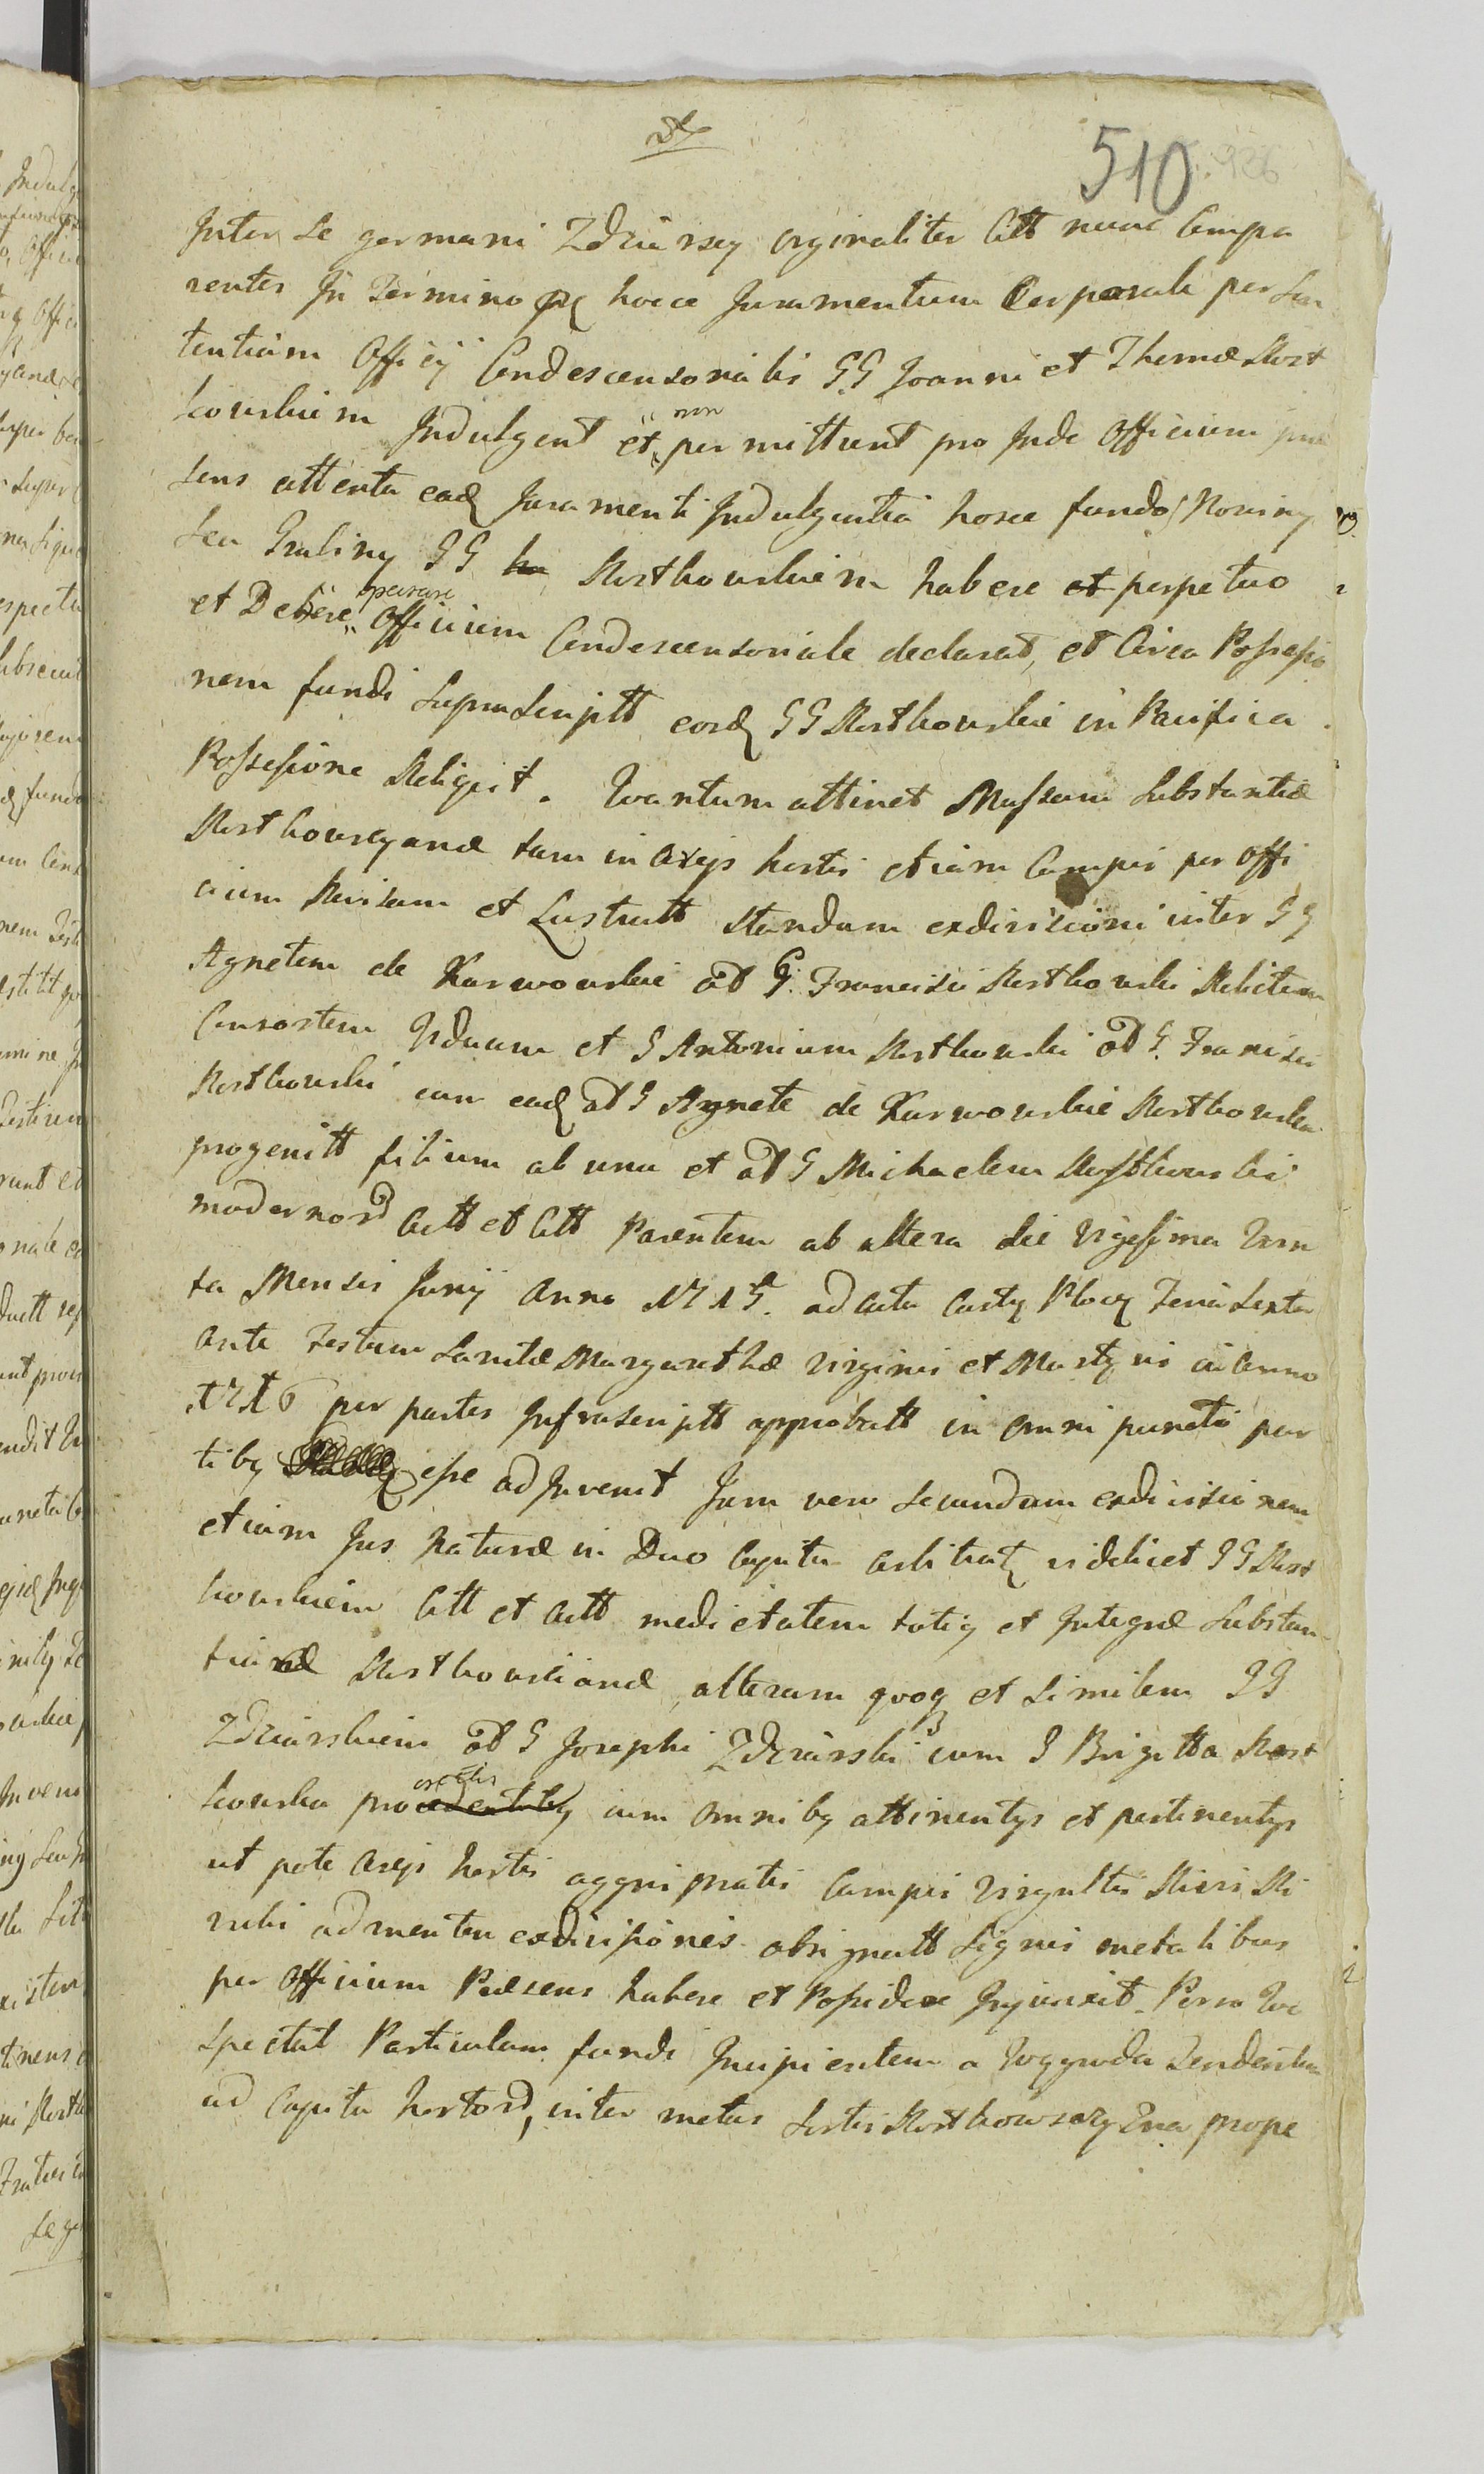 510
Inter se germani Zdziarscy originaliter Citt nunc Compa
rentes In Termino hocce Juramentum Corporale per Sen
tentiam Officij Condescensorialis GG Joanni et Thomæ Rost
kowskiem Indulgent et non permittunt pro Inde Officium præ
sens attenta ead Juramenti Indulgentia hosce fundos Nowiny
seu Graliny GG Rostkowskiem habere et perpetuo
et Debere Officium Condescensoriale declarat, et Circa Possessio
nem fundi Suprascriptt eosd GG Rostkowskie in Pacifica
Possessione Religit. Quantum attinet Massam Substantiæ
Rostkowscyanæ tam in Areis hortis etiam Campis per Offi
cium Revisam et Lustratt Standam exdivisioni inter GG
Agnetem de Karwowskie G. Francisci Rostkowski Relictam
Consortem Viduam et G Antonium Rostkowski G. Francisci
Rostkowski cum ead G Agnete de Karwowskie Rostkowska
progenitt filium ab una et G Michaelem Rostkowski
modernor Actt et Citt Parentem ab altera die vigesima Quin
ta Mensis Junij Anno 1715. ad acta Castr Ploc Feria Sexta
Ante Festum Sanctæ Margarethæ Virginis et Martyris in Anno
1716 per partes Infrascriptt approbatt in omni puncto par
tibq esse adInvenit Jam vero Secundum exdivisionem
etiam Jus Naturæ in Duo Capita arbitrat videlicet GG Rost
kowskiem Citt et Actt medietatem totiq et Integræ Substan
tiæ Rostkowscianæ alteram quoq et Similem GG
Zdziarskiem G Josephi Zdziarski cum G Brigitta Rost
kowska procedentibq cum omnibq attinentijs et pertinentijs
ut pote Areis hortis agris pratis Campis Virgultis
rubi ad mentem exdivisionis obsignatt Signis metalibus
per Officium Præsens habere et Possidere Injunxit. Porro Qu
spectat Particulam fundi Incipientem a Wygwoda Tendentem
ad Capita hortor, inter metas Sortis Rostkowsczyzna prope